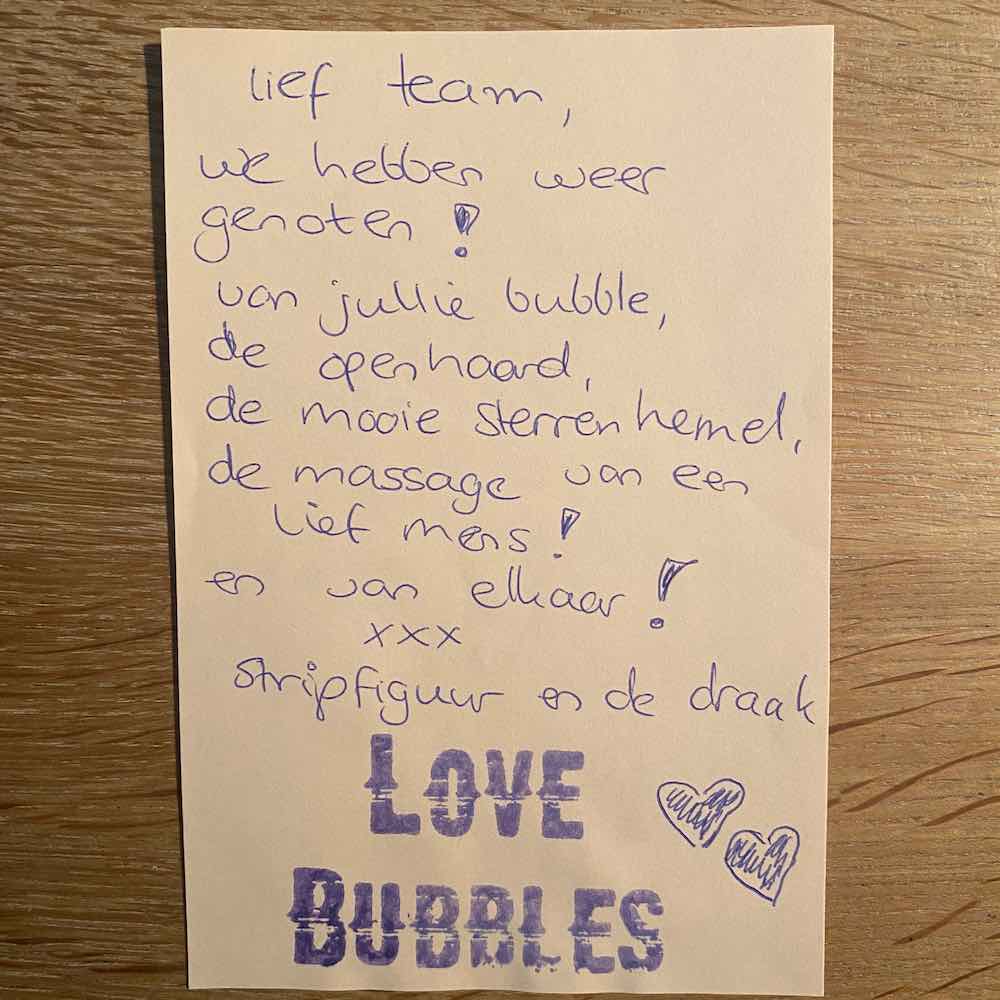 lief team,
we hebben weer
genoten!
van jullie bubble,
de openhaard,
de mooie sterrenhemel,
de massage van een
lief mens!
en van elkaar!
xxx
stripfiguur en de draak
LOVE
BUBBLES